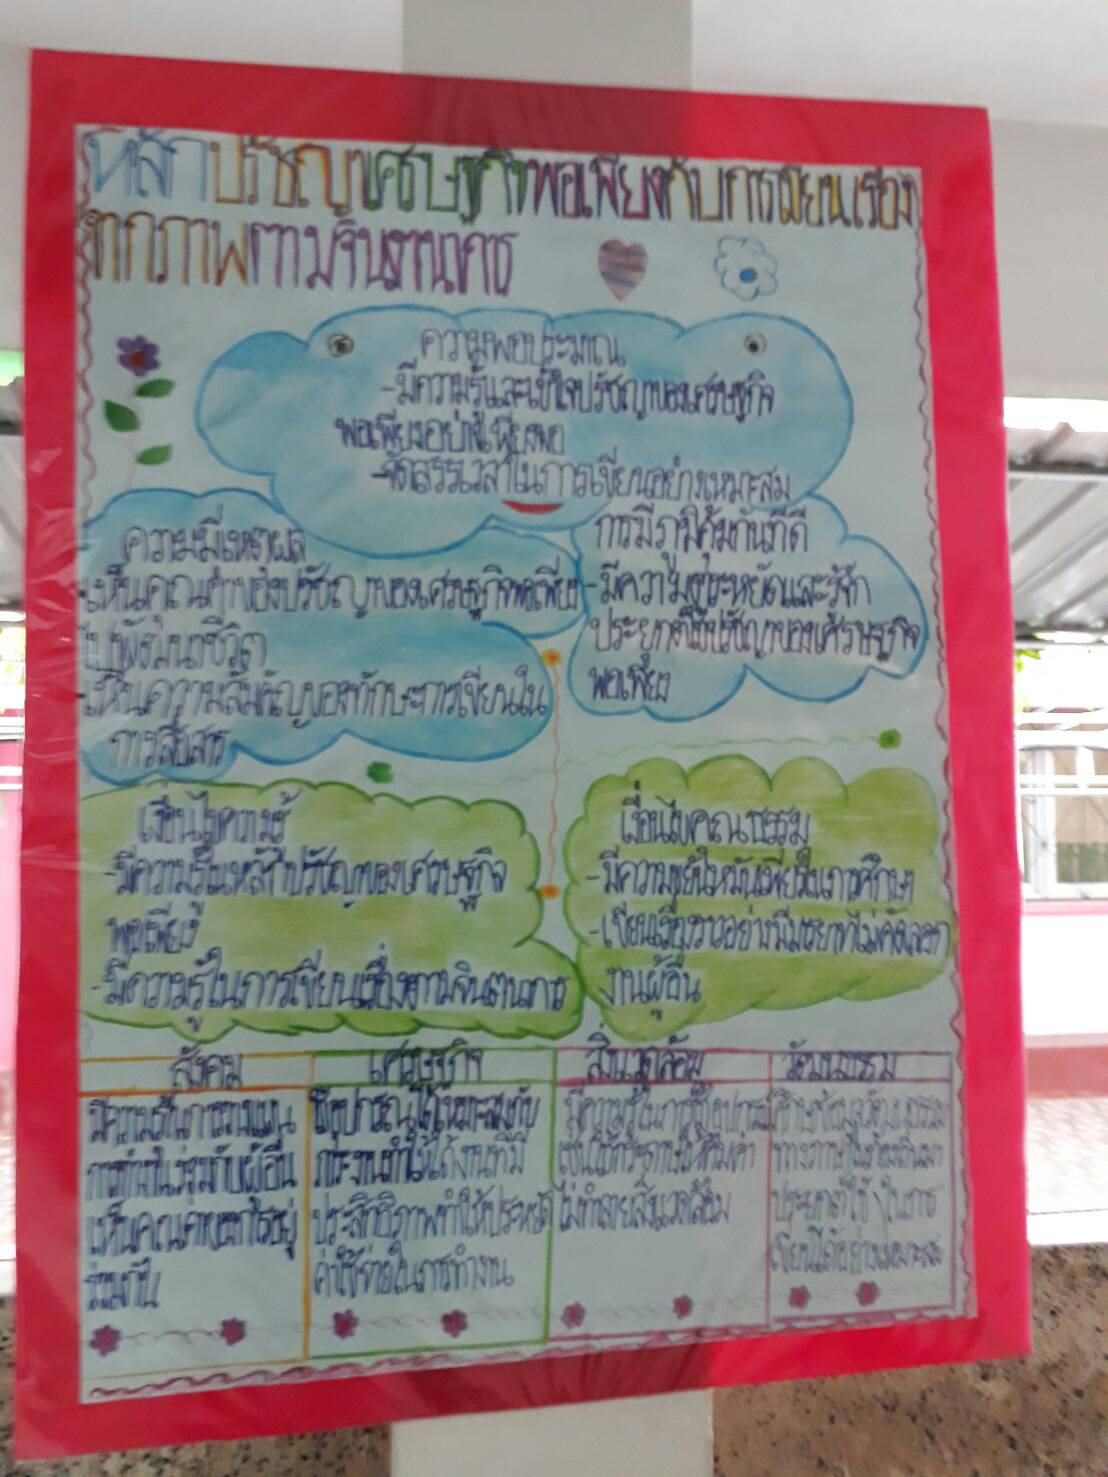 หลักปรัชญาเศรษฐกิจพอเพียงกับการเขียนเรื่อง
จากภาพตามจินตนาการ
ความพอประมาณ
-มีความรู้และเข้าใจปรัชญาของเศรษฐกิจ
พอเพียงอย่างเพียงพอ
-จัดสรรเวลาในการเขียนอย่างเหมาะสม
ความมีเหตุผล
-เห็นคุณค่าของปรัชญาของเศรษฐกิจพอเพียง
ชีวิต
-เห็นความสำคัญของทักษะการเขียนใน
การสื่อสาร
การมีภูมิคุ้มกันที่ดี
-มีความประหยัดและรู้จัก
ประยุกต์ใช้ปรัชญาของเศรษฐกิจ
พอเพียง
เงื่อนไขความรู้
-มีความรู้ในหลักปรัชญาของเศรษฐกิจ
พอเพียง
-มีความรู้ในการเขียนเรื่องตามจินตนาการ
เงื่อนไขคุณธรรม
-มีความขยันหมั่นเพียรในการศึกษา
-เขียนเรื่องราวอย่างมีมารยาทไม่คัดลอก
งานผู้อื่น
สังคม
มีความรู้ในการวางแผน
การทำงานร่วมกับผู้อื่น
เห็นคุณค่าของการอยู่
ร่วมกัน
เศรษฐกิจ
ใช้อุปกรณ์ได้เหมาะสมกับ
ภาระงานทำให้ได้งานที่มี
ประสิทธิภาพทำให้ประหยัด
ค่าใช้จ่ายในการทำงาน
สิ่งแวดล้อม
มีความรู้ในการใช้อุปกรณ์
เช่นใช้กระดาษให้คุ้มค่า
ไม่ทำลายสิ่งแวดล้อม
วัฒนธรรม
วัฒนธรรม
ทางภาษาในท้องถิ่นมา
ประยุกต์ใช้ในการ
เขียนได้อย่างเหมาะสม